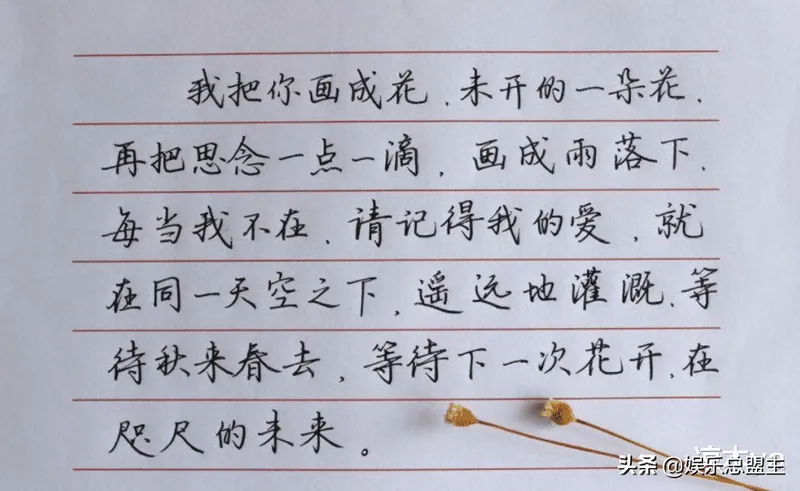 我把你画成花,未开的一朵花,
再把思念一点一滴,画成雨落下,
每当我不在,请记得我的爱,就
在同一天空之下,遥远地灌溉,等
待秋来春去,等待下一次花开,在
咫尺的未来。
头条 @娱乐总盟主